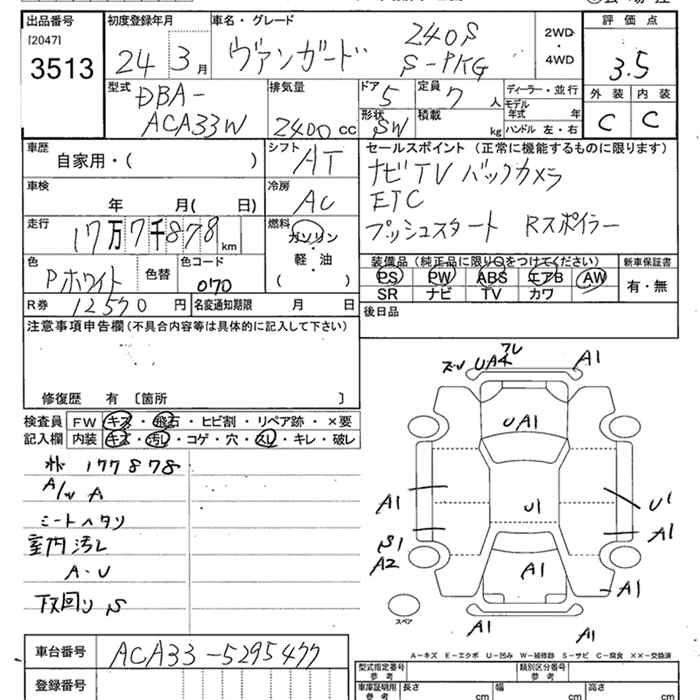 出品番号 初度登録年月 車名・グレード 評価点
[2047] 3513 24年 3月 ヴァンガード 240S S-PKG 2WD・4WD 3.5
型式 DBA-ACA33W 排気量 2400cc ドア 5 定員 7人 ディーラー・並行 外装 内装
形状 SW 積載 kg モデル年式 年 C C
ハンドル 左・右
車歴 自家用・( ) シフト AT セールスポイント (正常に機能するものに限ります)
車検 年 月( 日) 冷房 AC ナビ TV バックカメラ
ETC
走行 17万7千878km 燃料 ガソリン・軽・油 ( ) プッシュスタート Rスポイラー
色 Pホワイト 色替 色コード 070 装備品 (純正品に限り○をつけてください) 新車保証書
PS PW ABS エアB AW 有・無
SR ナビ TV カワ
R券 12570円 名変通知期限 月 日 後日品
注意事項申告欄 (不具合内容等は具体的に記入して下さい)
修復歴 有 〔箇所 〕
検査員 FW キズ・飛石・ヒビ割・リペア跡・×要
記入欄 内装 キズ・汚レ・コゲ・穴・スレ・キレ・破レ
177878
A/W A
シートヘタリ
室内汚レ
A・U
下回り S
UA4 A1
UA1
A1 U1 U1
S1 A1
A2
A1 A1
スペア
A1 A1
A-キズ E-エクボ U-凹み W-補修跡 S-サビ C-腐食 ××-交換済
車台番号 ACA33-5295477 型式指定番号 参考 類別区分番号 参考
登録番号 車庫証明用 参考 長さ cm 幅 cm 高さ cm